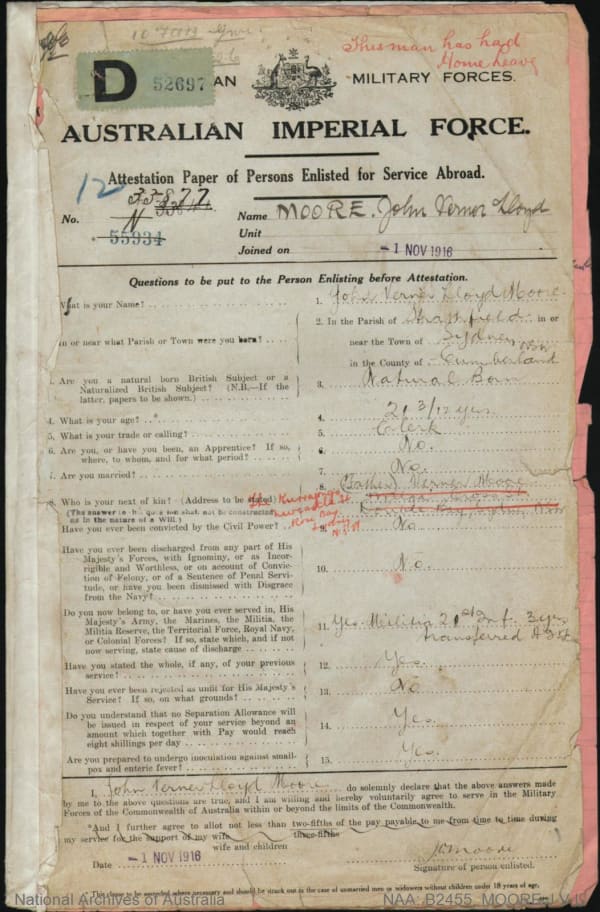 This man has had
Home leave
D 52697
AN MILITARY FORCES.
AUSTRALIAN IMPERIAL FORCE.
Attestation Paper of Persons Enlisted for Service Abroad.
12
33877
No. N
55934
Name MOORE. John Verner Lloyd
Unit
Joined on -1 NOV 1916
Questions to be put to the Person Enlisting before Attestation.
What is your Name?
1. John Verner Lloyd Moore
in or near what Parish or Town were you born?
2. In the Parish of Strathfield in or
near the Town of Sydney
in the County of Cumberland
Are you a natural born British Subject or a
Naturalized British Subject? (N.B.—If the
latter, papers to be shown.)
3. Natural Born
4. What is your age?
4. 21 3/12 yrs
5. What is your trade or calling?
5. Clerk
6. Are you, or have you been, an Apprentice? If so,
where, to whom, and for what period?
6. No.
7. Are you married?
7. No.
8. Who is your next of kin? (Address to be stated)
8. (Father) Verner Moore
(The answer to this question shall not be construed
as in the nature of a Will.)
Rose Bay
Sydney
Have you ever been convicted by the Civil Power?
9. No
Have you ever been discharged from any part of His
Majesty's Forces, with Ignominy, or as Incor-
rigible and Worthless, or on account of Convic-
tion of Felony, or of a Sentence of Penal Servi-
tude, or have you been dismissed with Disgrace
from the Navy?
10. No.
Do you now belong to, or have you ever served in, His
Majesty's Army, the Marines, the Militia, the
Militia Reserve, the Territorial Force, Royal Navy,
or Colonial Forces? If so, state which, and if not
now serving, state cause of discharge
11. Yes. Militia 21st Inf. 3 yrs
transferred
Have you stated the whole, if any, of your previous
service?
12. Yes.
Have you ever been rejected as unfit for His Majesty's
Service? If so, on what grounds?
13. No
Do you understand that no Separation Allowance will
be issued in respect of your service beyond an
amount which together with Pay would reach
eight shillings per day
14. Yes.
Are you prepared to undergo inoculation against small-
pox and enteric fever?
15. Yes.
I, John Verner Lloyd Moore do solemnly declare that the above answers made
by me to the above questions are true, and I am willing and hereby voluntarily agree to serve in the Military
Forces of the Commonwealth of Australia within or beyond the limits of the Commonwealth.
*And I further agree to allot not less than two-fifths of the pay payable to me from time to time during
three-fifths
my service for the support of my wife
wife and children
Date -1 NOV 1916
Signature of person enlisted.
* This clause to be amended where necessary and should be struck out in the case of unmarried men or widowers without children under 18 years of age.
National Archives of Australia
NAA: B2455, MOORE J V L